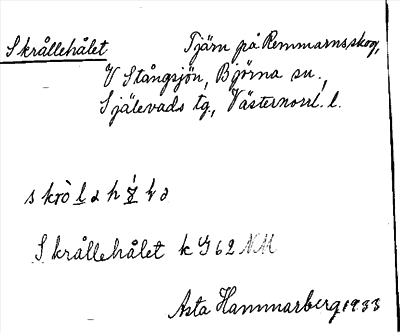 Skrållehålet Tjärn på Remmarns skog,
V Stångsjön, Björna sn.,
Själevads tg., Västernorrl. l.
Skrållehålet k y 62 NM
Asta Hammarberg 1933